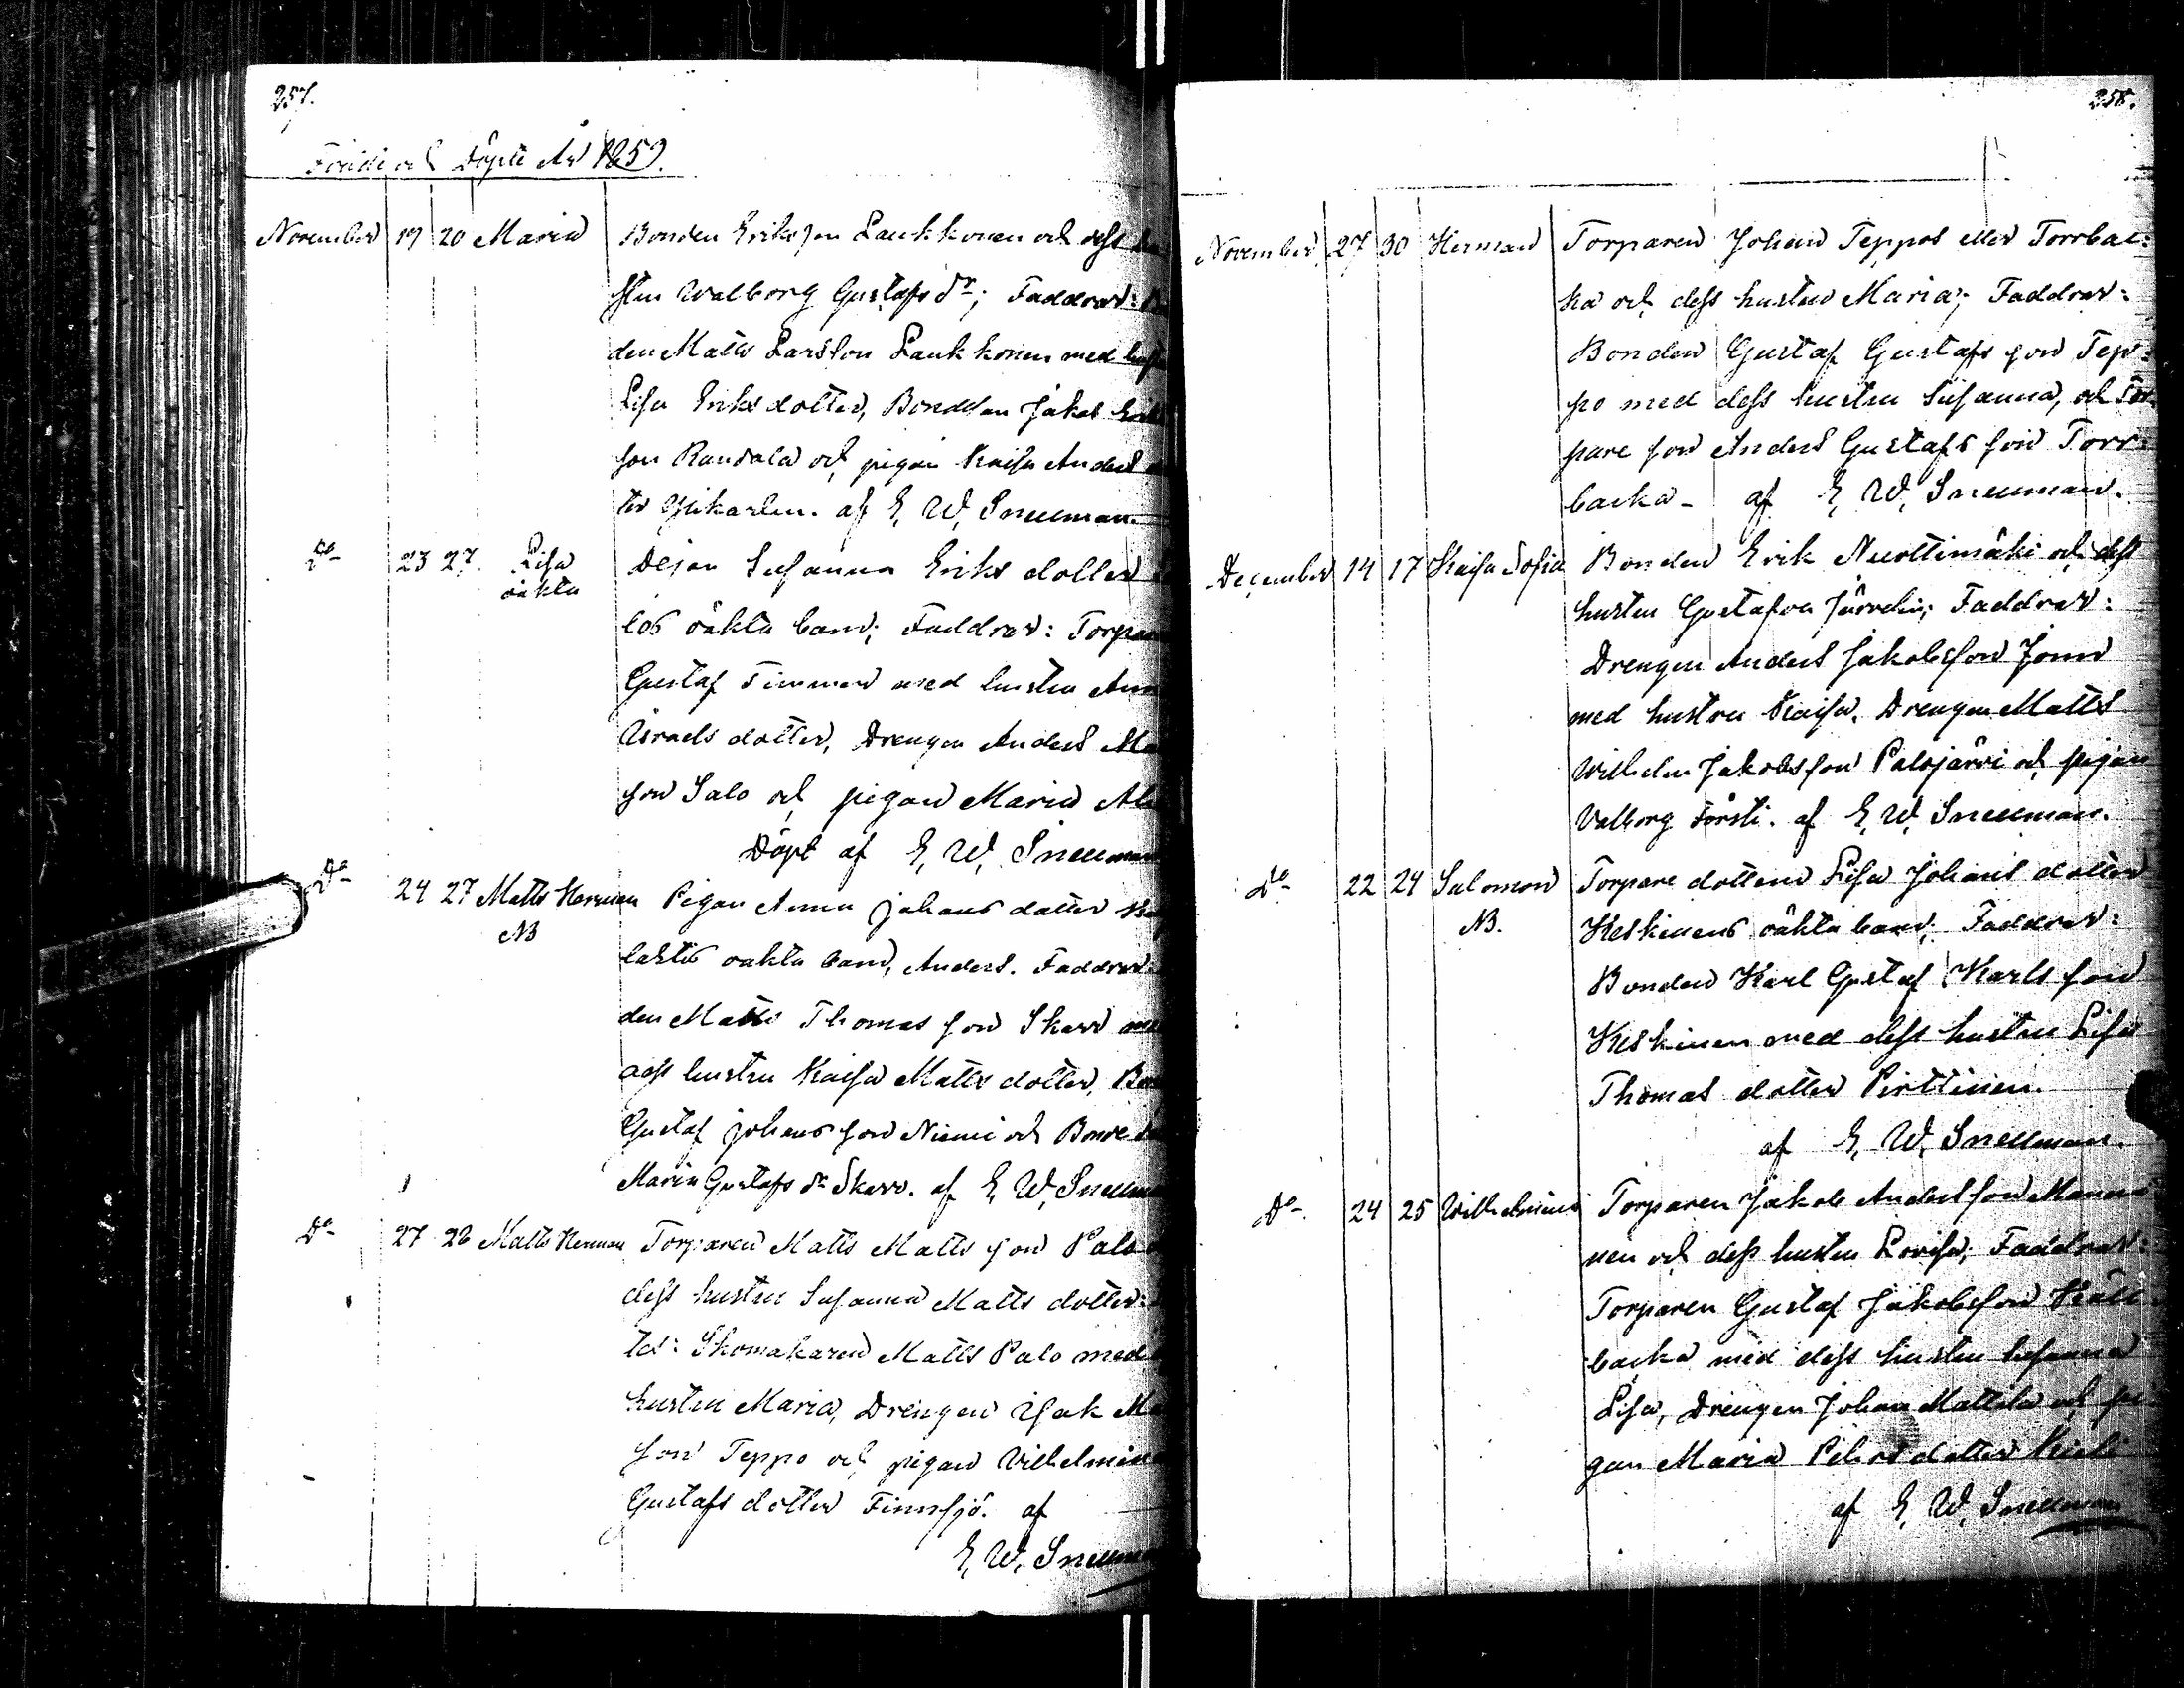 257.
Födde och Döpte År 1859.
November 17 20 Maria Bonden Eriksson Laukkonen och dess
stru Walborg Gustafs dr; Faddrar:
den Matts Larsson Laukkonen med
Lisa Eriks dotter, Bondson Jakob
son Randala och pigan Kaisa Anders
ter af E. W. Snellman.
Do 23 27. Lisa Susanna Eriks dotter
oäkta
los oäkta barn; Faddrar:
Gustaf Timmer med hustru
Israels dotter, Drengen Anders
son Salo och pigan Maria
Döpt af E. W. Snellman
Do 24 27 Matts Herman Pigan Anna Johans dotter
NB
oäkta barn, Anders. Faddrar:
den Matts Thomas son Skarr
dess hustru Kaisa Matts dotter,
Gustaf Johans son Niemi och
Maria Gustafs dr Skarr. af E. W. Snellman
Do 27 28 Matts Herman Torparen Matts Matts son Palo
dess hustru Susanna Matts dotter:
Skomakaren Matts Palo med
hustru Maria, Drengen Isak
son Teppo och pigan Vilhelmina
Gustafs dotter Finnsjö. af
E. W. Snellman
258.
November 27 30 Herman Torparen Johan Teppos eller Torrbac:
ka och dess hustru Maria; Faddrar:
Bonden Gustaf Gustafs son Tep:
po med dess hustru Susanna, och Tor
pare son Anders Gustafs son Torr:
backa - af E. W. Snellman.
December 14 17 Kaisa Sofia Bonden Erik Nuottimäki och dess
hustru Gustafva Järvelin; Faddrar:
Drengen Anders Jakobsson
med hustru Kaisa, Drengen Matts
Wilhelm Jakobsson Palojärvi och pigan
Valborg Försti. af E. W. Snellman.
Do 22 24 Salomon Torpare dottern Lisa Johans dotter
NB. Keskinens oäkta barn; Faddrar:
Bonden Karl Gustaf Karls son
Keskinen med dess hustru Lisa
Thomas dotter Pirttinen.
af E. W. Snellman.
Do 24 25 Wilhelmina Torparen Jakob Andersson
nen och dess hustru Lovisa; Faddrar:
Torparen Gustaf Jakobsson
backa med dess hustru Susanna
Lisa, Drengen Johan Mattila och pi
gan Maria dotter
af E. W. Snellman